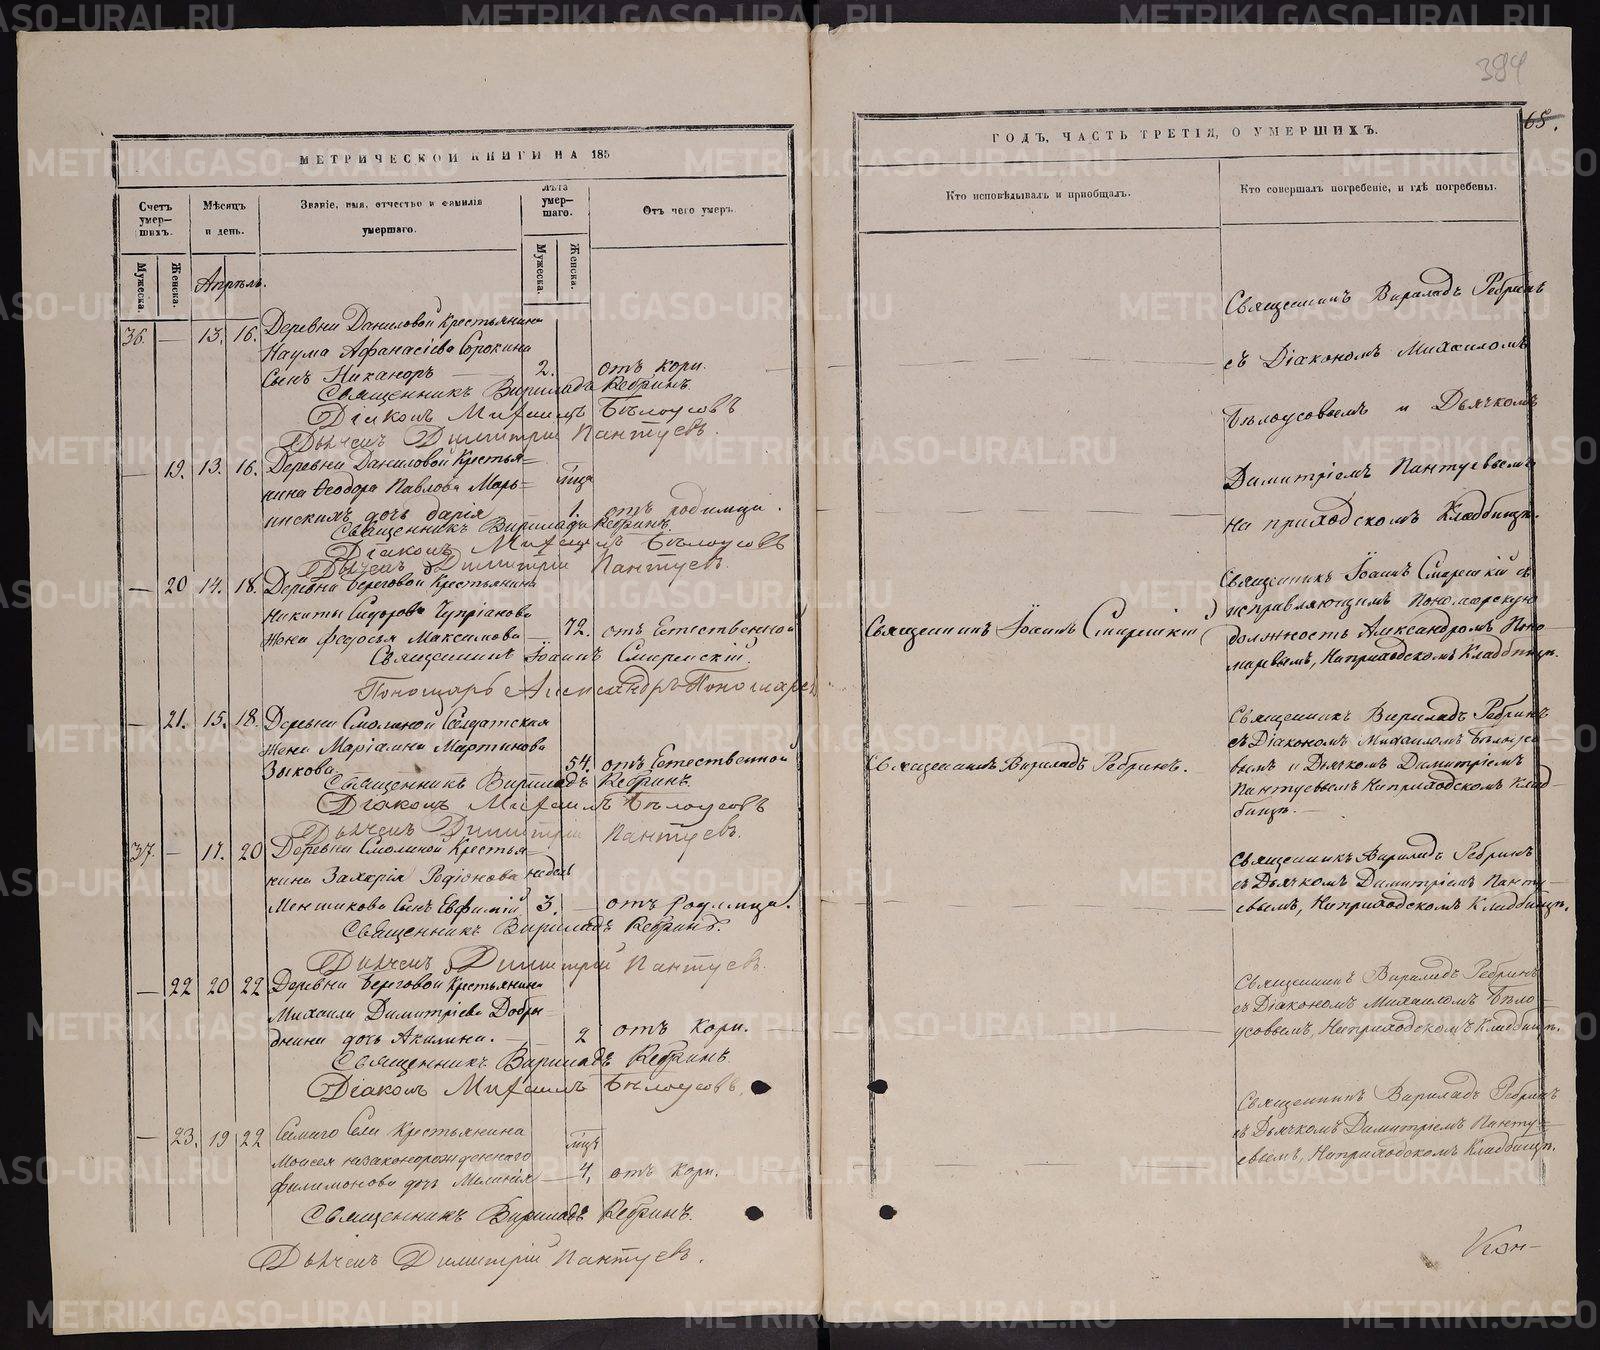 МЕТРИЧЕСКОЙ КНИГИ НА 185
Счетъ умер-шихъ.
Мѣсяцъ и день.
Званіе, имя, отчество и фамилія умершаго.
лѣта умер-шаго.
Отъ чего умеръ.
Мужеска.
Женска.
Мужеска.
Женска.
Апрѣль.
36. — 13. 16. Деревни Даниловой Крестьянина
Наума Афанасіева Сорокина
Сынъ Никаноръ — 2. отъ кори.
Священникъ Вириладъ Ребринъ.
Діаконъ Михаилъ Бѣлоусовъ
Дьячекъ Димитрій Пантуевъ.
— 19. 13. 16. Деревни Даниловой Крестья=
нина Ѳеодора Павлова Марь=
инскихъ дочь Дарія — 1. отъ родимца.
Священникъ Вириладъ Ребринъ.
Діаконъ Михаилъ Бѣлоусовъ
Дьячекъ Димитрій Пантуевъ.
— 20 14. 18. Деревни Береговой Крестьянина
Никиты Сидорова Чупріанова
Жена Федосья Максимова — 72. отъ Естественной
Священникъ Іоаннъ Смиренскій.
Пономарь Александръ Пономарев
— 21. 15. 18. Деревни Смолиной Солдатская
Жена Маріамна Мартынова
Зыкова. 54. отъ Естественной
Священникъ Вириладъ Ребринъ.
Діаконъ Михаилъ Бѣлоусовъ
Дьячекъ Димитрій Пантуевъ.
37. — 17. 20 Деревни Смолиной Крестья=
нина Захарія Родіонова недел
Меншикова Сынъ Евфимій 3. — отъ Родимца.
Священникъ Вириладъ Ребринъ.
Дьячекъ Димитрій Пантуевъ.
— 22 20 22 Деревни Береговой Крестьянина
Михаила Димитріева Добры=
днина дочь Акилина. — 2 отъ кори.
Священникъ Вириладъ Ребринъ
Діаконъ Михаилъ Бѣлоусовъ.
— 23. 19 22 Самаго Села Крестьянина
Моисея незаконорожденнаго
Филимонова дочь Меланія — 4. отъ кори.
Священникъ Вириладъ Ребринъ.
Дьячекъ Димитрій Пантуевъ.
394
68.
ГОДЪ, ЧАСТЬ ТРЕТІЯ, О УМЕРШИХЪ.
Кто исповѣдывалъ и пріобщалъ.
Кто совершалъ погребеніе, и гдѣ погребены.
Священникъ Вириладъ Ребринъ
съ Діакономъ Михаиломъ
Бѣлоусовымъ и Дьячкомъ
Димитріемъ Пантуевымъ
на приходскомъ Кладбищѣ.
Священникъ Іоаннъ Смиренскій
Священникъ Іоаннъ Смиренскій съ
исправляющимъ Пономарскую
должность Александромъ Поно-
маревымъ, На приходскомъ Кладбищѣ.
Священникъ Вириладъ Ребринъ.
Священникъ Вириладъ Ребринъ
съ Діакономъ Михаиломъ Бѣлоусо-
вымъ и Дьячкомъ Димитріемъ
Пантуевымъ На приходскомъ Клад-
бищѣ. —
Священникъ Вириладъ Ребринъ
съ Дьячкомъ Димитріемъ Панту-
евымъ, На приходскомъ Кладбищѣ.
Священникъ Вириладъ Ребринъ
съ Діакономъ Михаиломъ Бѣло-
усовымъ, На приходскомъ Кладбищѣ.
Священникъ Вириладъ Ребринъ
съ Дьячкомъ Димитріемъ Панту-
евымъ, На приходскомъ Кладбищѣ.
METRIKI.GASO-URAL.RU